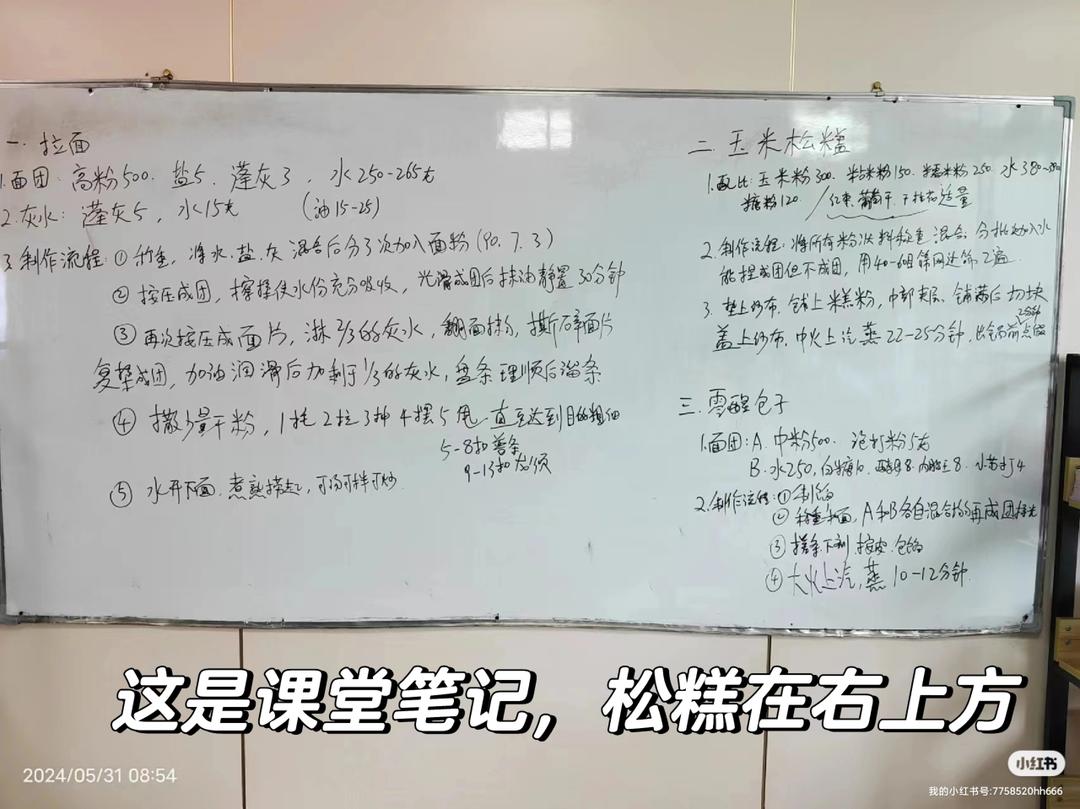 一. 拉面
1.面团: 高粉500. 盐5. 蓬灰3, 水250-265克
2.灰水: 蓬灰5, 水15克 (油15-25)
3.制作流程: ①称重, 将水.盐.灰 混合后分3次加入面粉(90.7.3)
②按压成团, 搓揉使水份充分吸收, 光滑成团后抹油静置30分钟
③再次按压成面片, 淋2/3的灰水, 翻面抹匀, 撕碎面片
复揉成团, 加油润滑后加剩于1/3的灰水, 盘条理顺后溜条
④撒少量干粉, 1托2拉3抻4摆5甩.直至达到目的粗细
5-8扣普条
9-13扣龙须
⑤水开下面. 煮熟捞起, 可汤可拌可炒.
二 玉米松糕
1.配比: 玉米粉300. 粘米粉150. 糯米粉250. 水380-
糖粉120. / 红枣. 葡萄干. 适量
2.制作流程: 将所有粉状料称重混合, 分批次加入水
能捏成团但不成团, 用40-60目筛网过筛2遍.
3. 垫上纱布, 铺上糕粉, 中部夹层. 铺满后切块
盖上纱布. 中火上汽蒸22-25分钟, 出锅前点缀
三.零醒包子
1.面团: A. 中粉500. 泡打粉5克
B. 水250, 白糖10. 酵母8. 8. 小苏打4
2.制作流程: ①制馅
②称重和面, A和B各自混合均匀再成团揉光
③搓条.下剂.按皮.包馅
④大火上汽, 蒸10-12分钟.
这是课堂笔记，松糕在右上方
2024/05/31 08:54
小红书
我的小红书号:7758520hh666